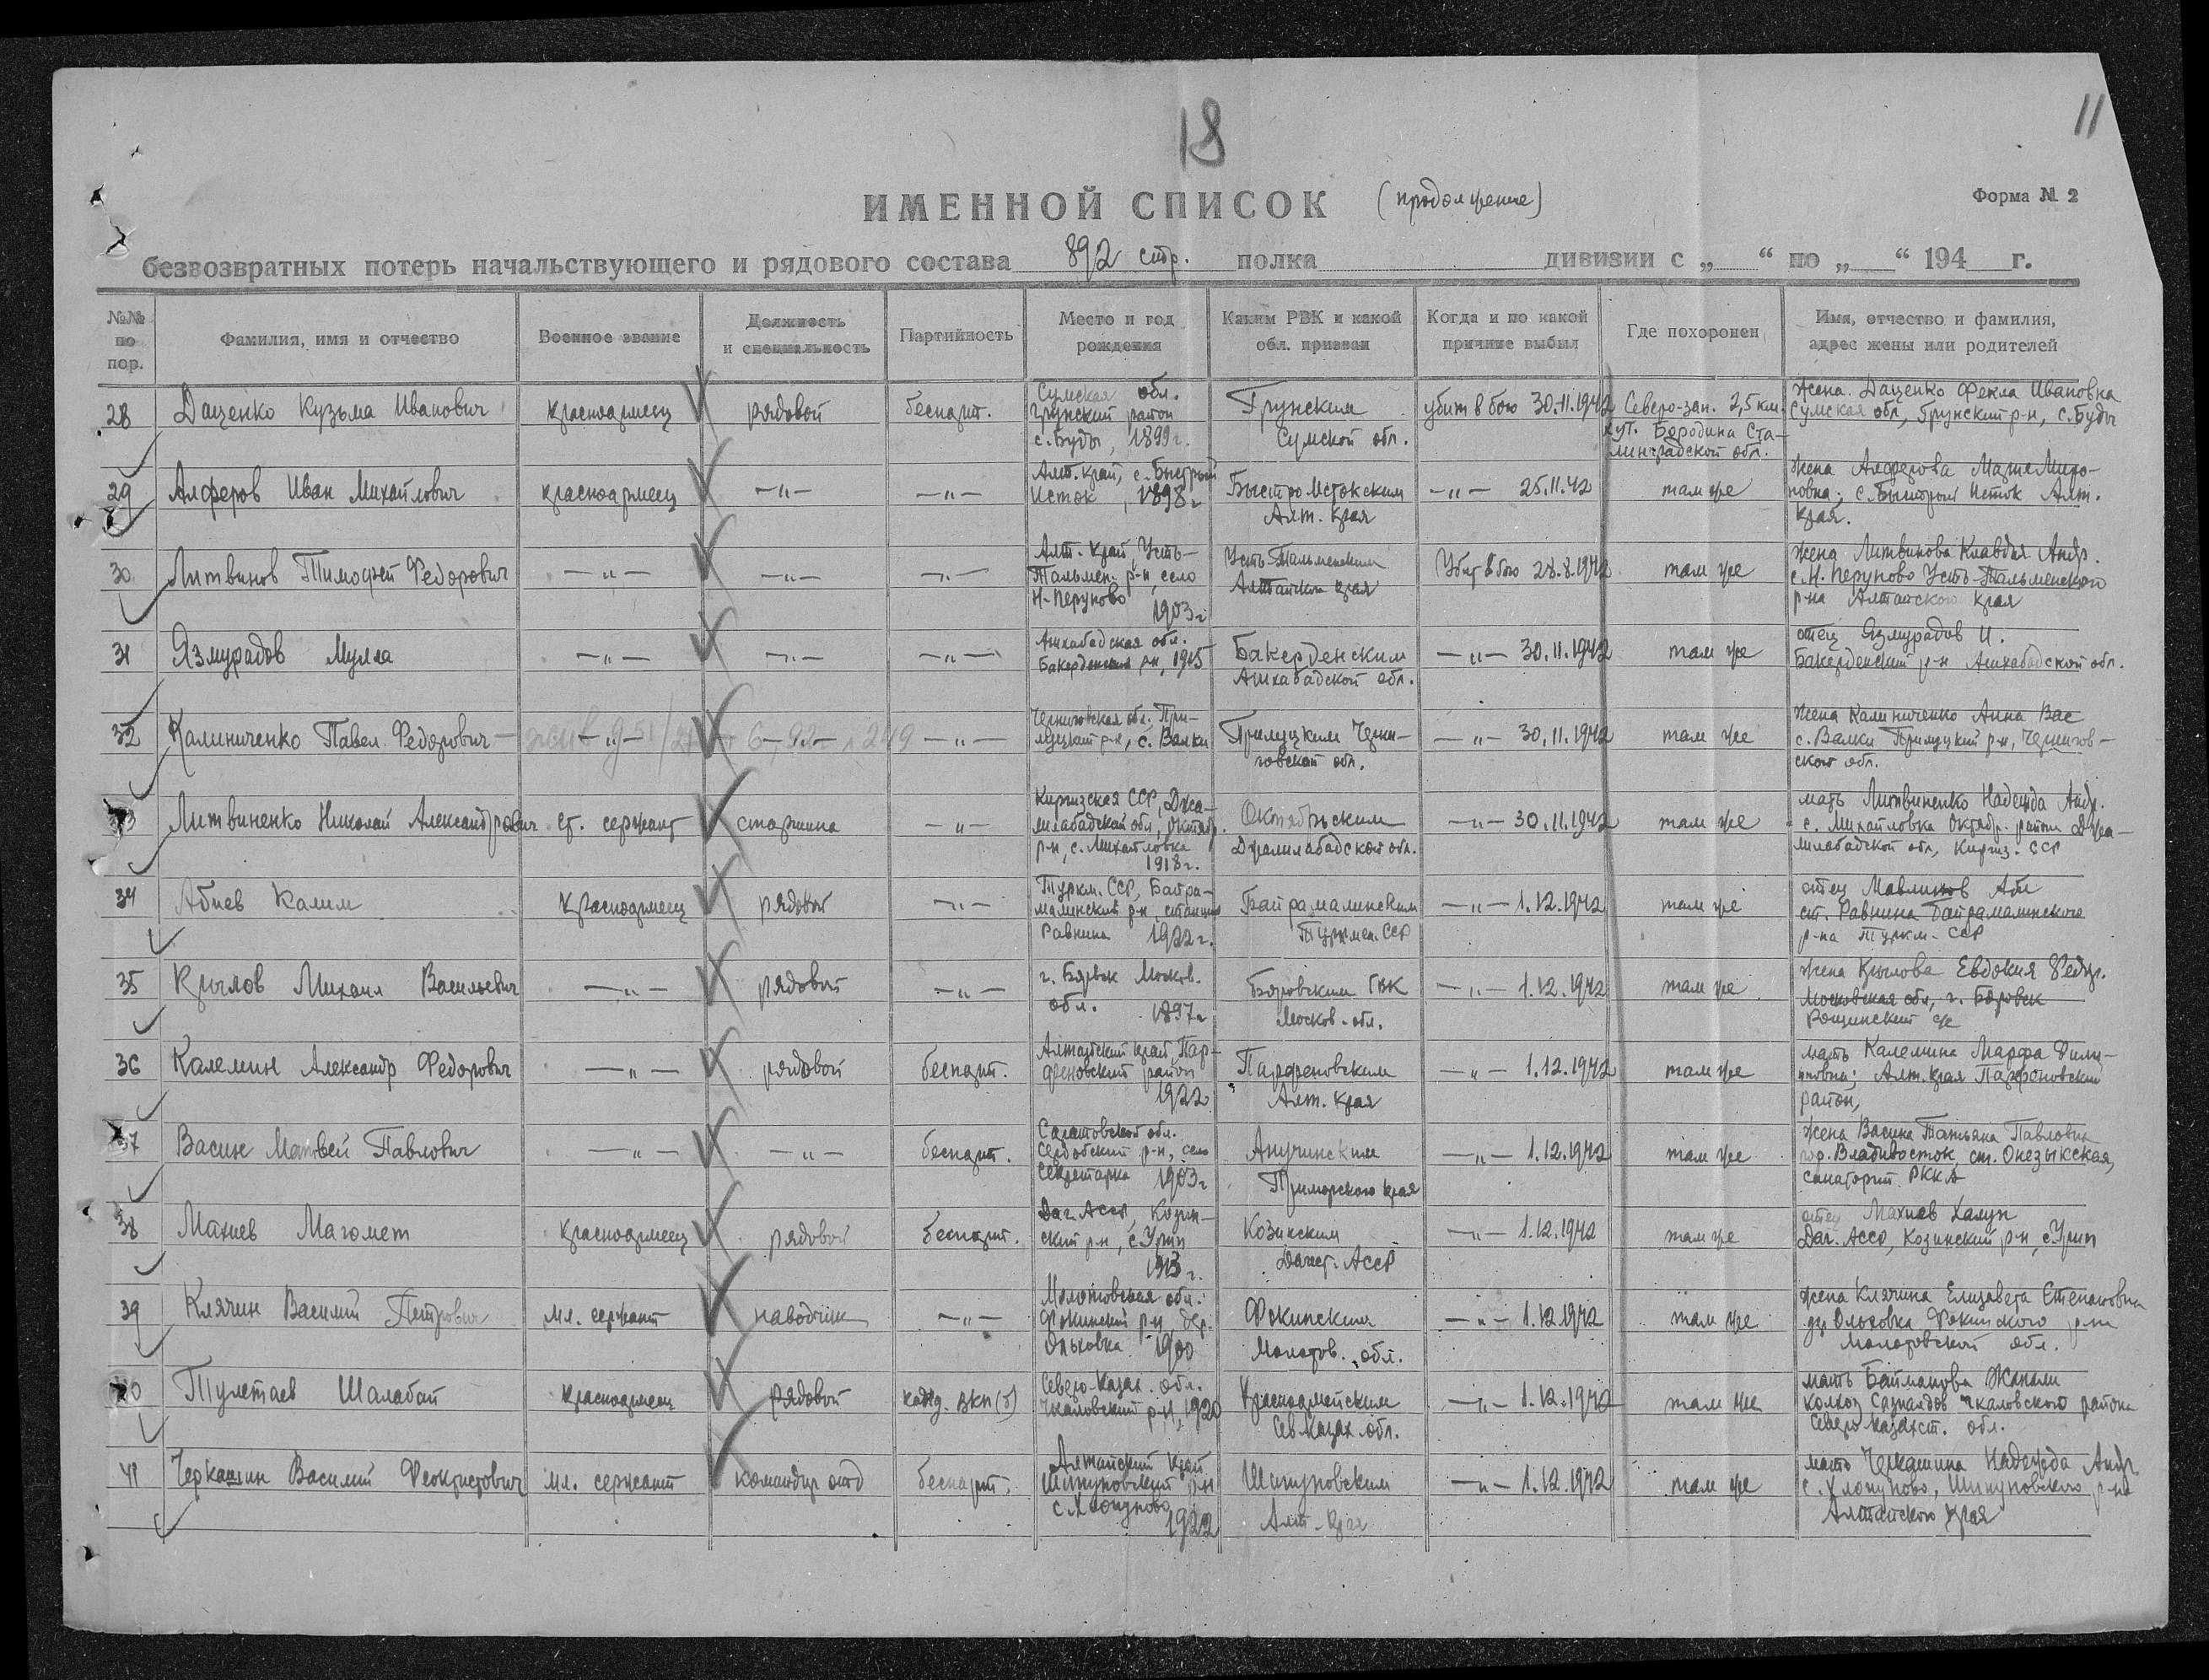 18
11
ИМЕННОЙ СПИСОК (продолжение)
Форма № 2
безвозвратных потерь начальствующего и рядового состава 892 стр. полка дивизии с „ “ по „ “ 194 г.
№№ по пор.
Фамилия, имя и отчество
Военное звание
Должность и специальность
Партийность
Место и год рождения
Каким РВК и какой обл. призван
Когда и по какой причине выбыл
Где похоронен
Имя, отчество и фамилия, адрес жены или родителей
28
Даценко Кузьма Иванович
красноармеец
рядовой
беспарт.
Сумская обл.
Грунский район
с. Буды, 1899 г.
Грунским
Сумской обл.
убит в бою 30.11.1942
Северо-зап. 2,5 км.
хут. Бородина Ста-
линградской обл.
Жена Даценко Фекла Ивановна
Сумская обл, Грунский р-н, с. Буды
29
Алферов Иван Михайлович
красноармеец
—„—
—„—
Алт. край, с. Быстрый
Исток, 1898 г
Быстро Истокским
Алт. края
—„— 25.11.42
там же
Жена Алферова Миро-
новна; с. Быстрый Исток Алт.
края.
30
Литвинов Тимофей Федорович
—„—
—„—
—„—
Алт. край, Усть-
Тальмен. р-н, село
Н-Перуново
1903 г
Усть-Тальменским
Алтайского края
Убит в бою 28.8.1942
там же
Жена Литвинова Клавдия Андр.
с. Н. Перуново Усть-Тальменского
р-на Алтайского края
31
Язмурадов Мулла
—„—
—„—
—„—
Ашхабадская обл.
Бакерденский р-н, 1915
Бакерденским
Ашхабадской обл.
—„— 30.11.1942
там же
отец Язмурадов И.
Бакерденский р-н Ашхабадской обл.
32
Калиниченко Павел Федорович
—„—
—„—
—„—
Черниговская обл. При-
луцкий р-н, с. Валки
Прилуцким Черни-
говской обл.
—„— 30.11.1942
там же
Жена Калиниченко Анна Вас
с. Валки Прилуцкий р-н, Чернигов-
ской обл.
33
Литвиненко Николай Александрович
ст. сержант
старшина
—„—
Киргизская ССР, Джа-
лилабадской обл, Октябр.
р-н, с. Михайловка
1918 г.
Октябрьским
Джалилабадской обл.
—„— 30.11.1942
там же
мать Литвиненко Надежда Андр.
с. Михайловка Октябр. район Джа-
лилабадской обл, Киргиз. ССР
34
Абиев Калим
красноармеец
рядовой
—„—
Туркм. ССР, Байра-
малинский р-н, станция
Равнина 1922 г.
Байрамалинским
Туркмен. ССР
—„— 1.12.1942
там же
отец Аби
ст. Равнина Байрамалинского
р-на Туркм. ССР
35
Крылов Михаил Васильевич
—„—
рядовой
—„—
г. Москов.
обл. 1897 г
Боровским ГВК
Москов. обл.
—„— 1.12.1942
там же
Жена Крылова Евдокия Федор.
Московская обл, г. Боровск
36
Калемин Александр Федорович
—„—
рядовой
беспарт.
Алтайский край, Пар-
феновский район
1922
Парфеновским
Алт. края
—„— 1.12.1942
там же
мать Калемина Марфа Фили-
пповна; Алт. края Парфеновский
район,
37
Васин Матвей Павлович
—„—
—„—
беспарт.
Саратовской обл.
Сердобский р-н, село
Секретарка 1903 г
Анучинским
Приморского края
—„— 1.12.1942
там же
Жена Васина Татьяна Павловна
гор. Владивосток ст.
санаторий РККА
38
Махиев Магомет
красноармеец
рядовой
беспарт.
Даг. АССР, Козин-
ский р-н, с. Урип
1913 г.
Козинским
Дагест. АССР
—„— 1.12.1942
там же
отец Махиев Халун
Даг. АССР, Козинский р-н, с. Урип
39
Клячин Василий Петрович
мл. сержант
наводчик
—„—
Молотовская обл.
Фокинский р-н, дер.
Ольховка 1900
Фокинским
Молотов. обл.
—„— 1.12.1942
там же
жена Клячина Елизавета Степановна
др. Ольховка Фокинского р-на
Молотовской обл.
40
Тулетаев Шалабай
красноармеец
рядовой
канд. ВКП(б)
Северо-Казах. обл.
Чкаловский р-н, 1920
Красноармейским
Сев-Казах. обл.
—„— 1.12.1942
там же
мать Байманова Жамали
колхоз Чкаловского района
Северо-Казахст. обл.
41
Черкашин Василий Феоктистович
мл. сержант
командир отд
беспарт.
Алтайский край
Шипуновский р-н
с. Хлопуново
1922
Шипуновским
Алт. края
—„— 1.12.1942
там же
мать Черкашина Надежда Андр.
с. Хлопуново, Шипуновского р-на
Алтайского края